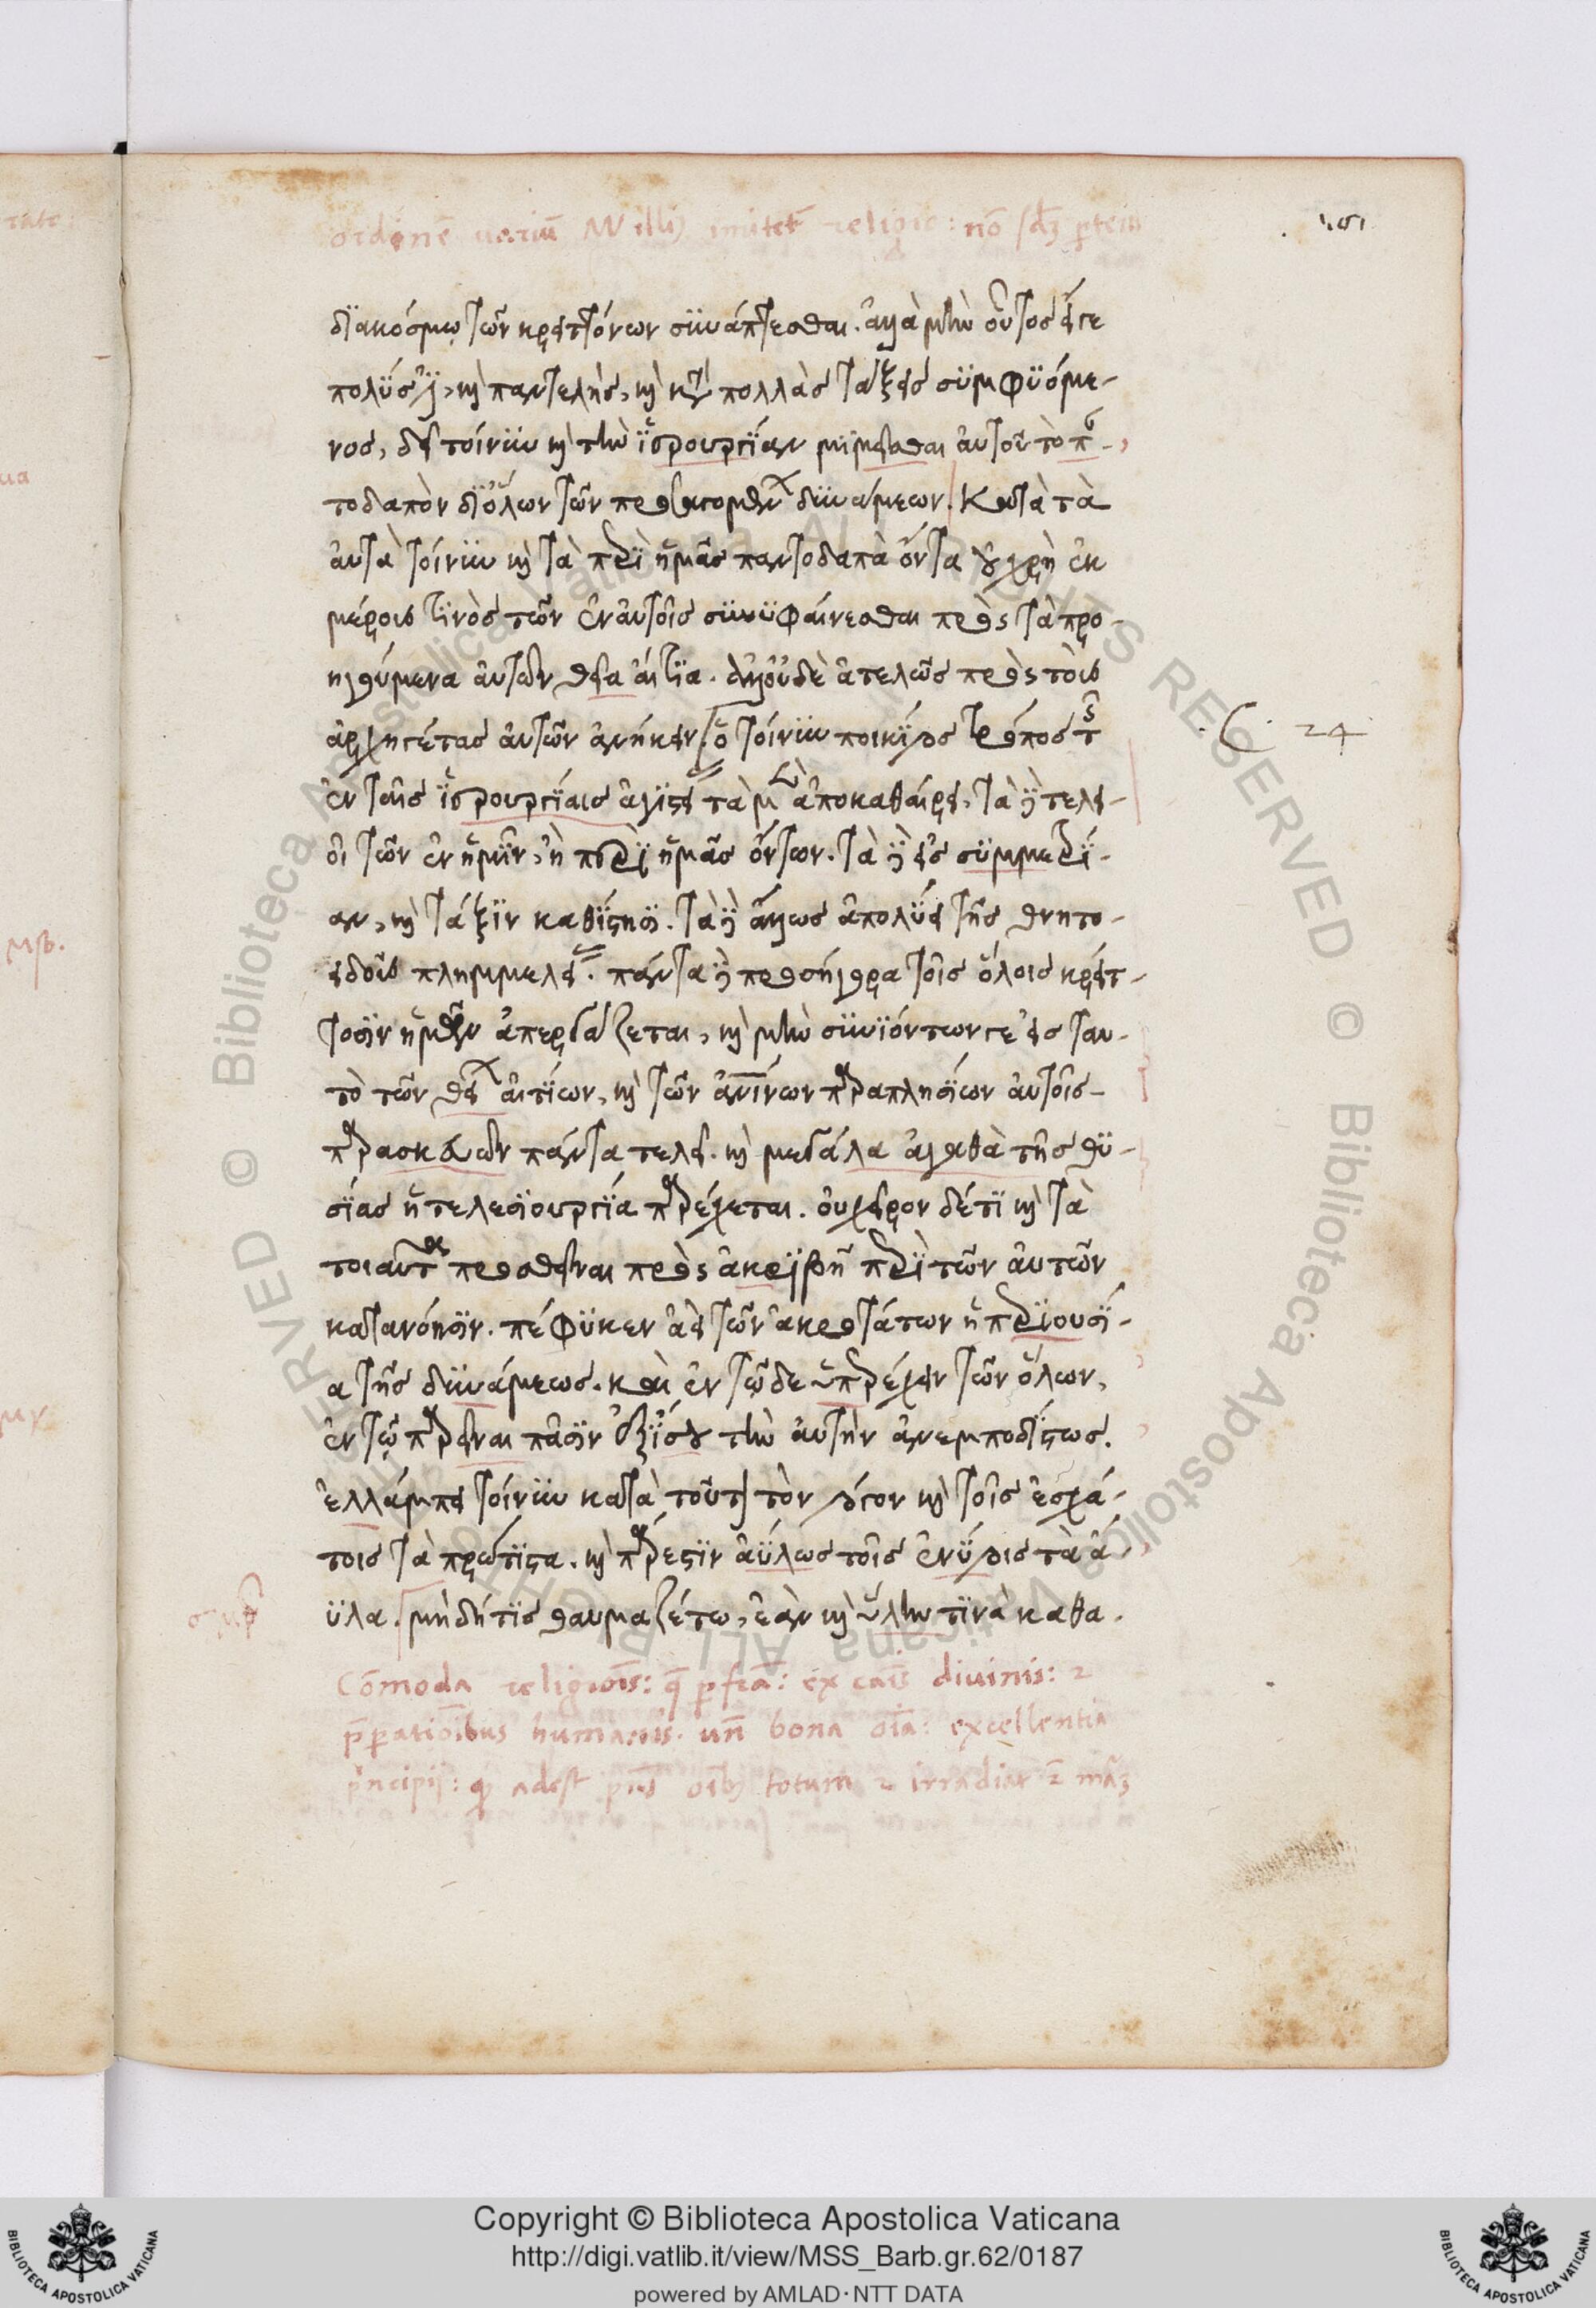 ordinē uariū Mūlli) imitet̃ religio: nō
διακόσμω τῶν κρειττόνων συνάπτεσθαι. ἀλλὰ μὴν οὗτος εἴγε
πολύς ἐστι, καὶ παντελὴς, καὶ κατὰ πολλὰς τάξεις συμφυόμε-
νος, δεῖ τοίνυν καὶ τὴν ἱερουργίαν μιμεῖσθαι αὐτοῦ τὸ παν-
τοδαπὸν δι' ὅλων τῶν προσαγομένων δυνάμεων. Κατὰ τὰ
αὐτὰ τοίνυν καὶ τὰ περὶ ἡμᾶς παντοδαπὰ ὄντα οὐ χρὴ ἐκ
μέρους τινὸς τῶν ἐν αὐτοῖς συνυφαίνεσθαι πρὸς τὰ προ-
ηγούμενα αὐτῶν θεῖα αἴτια. ἀλλ' οὐδὲ ἀτελῶς πρὸς τοὺς
ἀρχηγέτας αὐτῶν ἀνήκειν. ὁ τοίνυν ποικίλος τρόπος τῆς
ἐν ταῖς ἱερουργίαις ἁγιστείας τὰ μὲν ἀποκαθαίρει, τὰ δὲ τελει-
οῖ τῶν ἐν ἡμῖν, ἢ περὶ ἡμᾶς ὄντων. τὰ δὲ εἰς συμμετρί-
αν, καὶ τάξιν καθίστησι. τὰ δὲ ἄλλως ἀπολύει τῆς θνητο-
ειδοῦς πλημμελείας. πάντα δὲ προσήγορα τοῖς ὅλοις κρείτ-
τοσιν ἡμῶν ἀπεργάζεται, καὶ μὴν συνιόντων γε εἰς ταυ-
τὸ τῶν θείων αἰτίων, καὶ τῶν ἀνθρωπίνων παραπλησίων αὐτοῖς
παρασκευῶν πάντα τελεῖ. καὶ μεγάλα ἀγαθὰ τῆς θυ-
σίας ἡ τελεσιουργία παρέχεται. οὐ χεῖρον δέ τι καὶ τὰ
τοιαῦτα προσθεῖναι πρὸς ἀκριβῆ περὶ τῶν αὐτῶν
κατανόησιν. πέφυκεν ἀεὶ τῶν ἀκροτάτων ἡ περιουσί-
α τῆς δυνάμεως. καὶ ἐν τῷδε ὑπερέχειν τῶν ὅλων,
ἐν τῷ παρεῖναι πᾶσιν ἐξίσου τὴν αὐτὴν ἀνεμποδίστως.
ἐλλάμπει τοίνυν κατὰ τοῦτον τὸν λόγον καὶ τοῖς ἐσχά-
τοις τὰ πρώτιστα. καὶ πάρεστιν ἀΰλως τοῖς ἐνύλοις τὰ ἄ-
ϋλα. μὴ δή τις θαυμαζέτω, ἐὰν καὶ ὕλην τινὰ καθα-
24
Cōmoda religiōis: q̄ pfcā: ex cāis divinis: 2
p̄parationibus humanis. uñ bona oīa: excellentia
principij: q̨ adest totum 2 irradiat ī
Copyright © Biblioteca Apostolica Vaticana
http://digi.vatlib.it/view/MSS_Barb.gr.62/0187
powered by AMLAD·NTT DATA